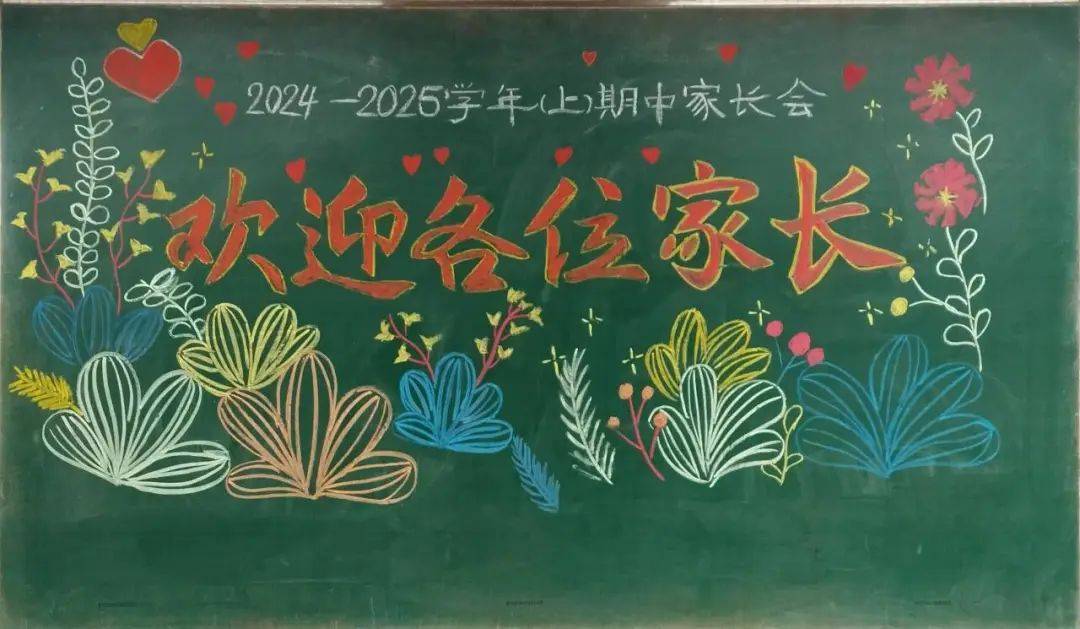 2024-2025学年(上)期中家长会
欢迎各位家长